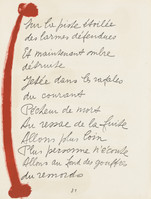 Sur la piste étoilée
des larmes défendues
Et maintenant ombre
détruite
Jetée dans les rafales
du courant
Pêcheur de mort
Du ressac de la fuite
Allons plus loin
Plus personne n'écoute
Allons au fond des gouffres
du remords